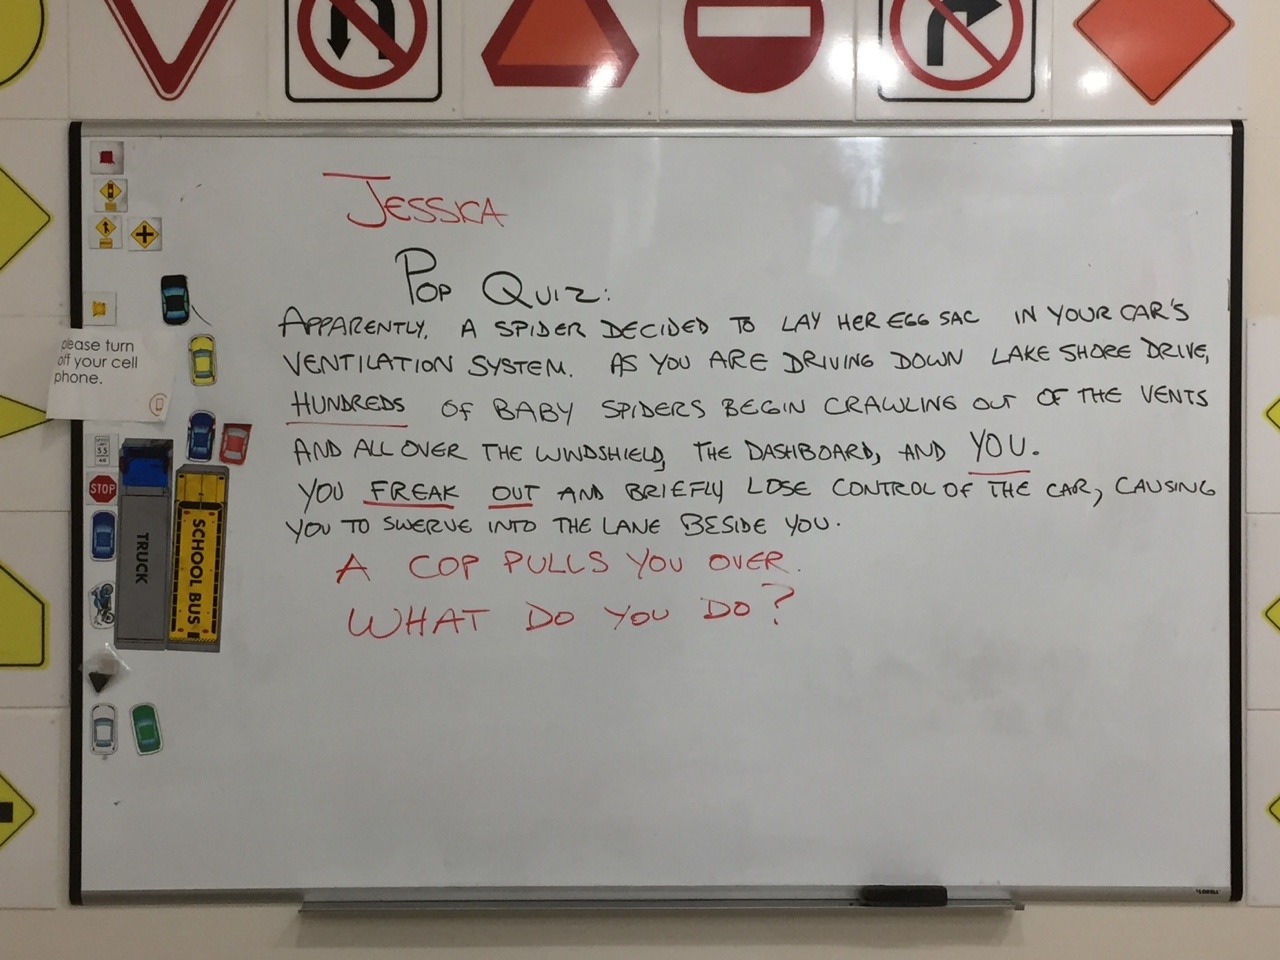 JESSKA
POP QUIZ:
APPARENTLY, A SPIDER DECIDED TO LAY HER EGG SAC IN YOUR CAR'S
VENTILATION SYSTEM. AS YOU ARE DRIVING DOWN LAKE SHORE DRIVE,
HUNDREDS OF BABY SPIDERS BEGIN CRAWLING OUT OF THE VENTS
AND ALL OVER THE WINDSHIELD, THE DASHBOARD, AND YOU.
YOU FREAK OUT AND BRIEFLY LOSE CONTROL OF THE CAR, CAUSING
YOU TO SWERVE INTO THE LANE BESIDE YOU.
A COP PULLS YOU OVER.
WHAT DO YOU DO?
please turn
off your cell
phone.
55
STOP
TRUCK
SCHOOL BUS